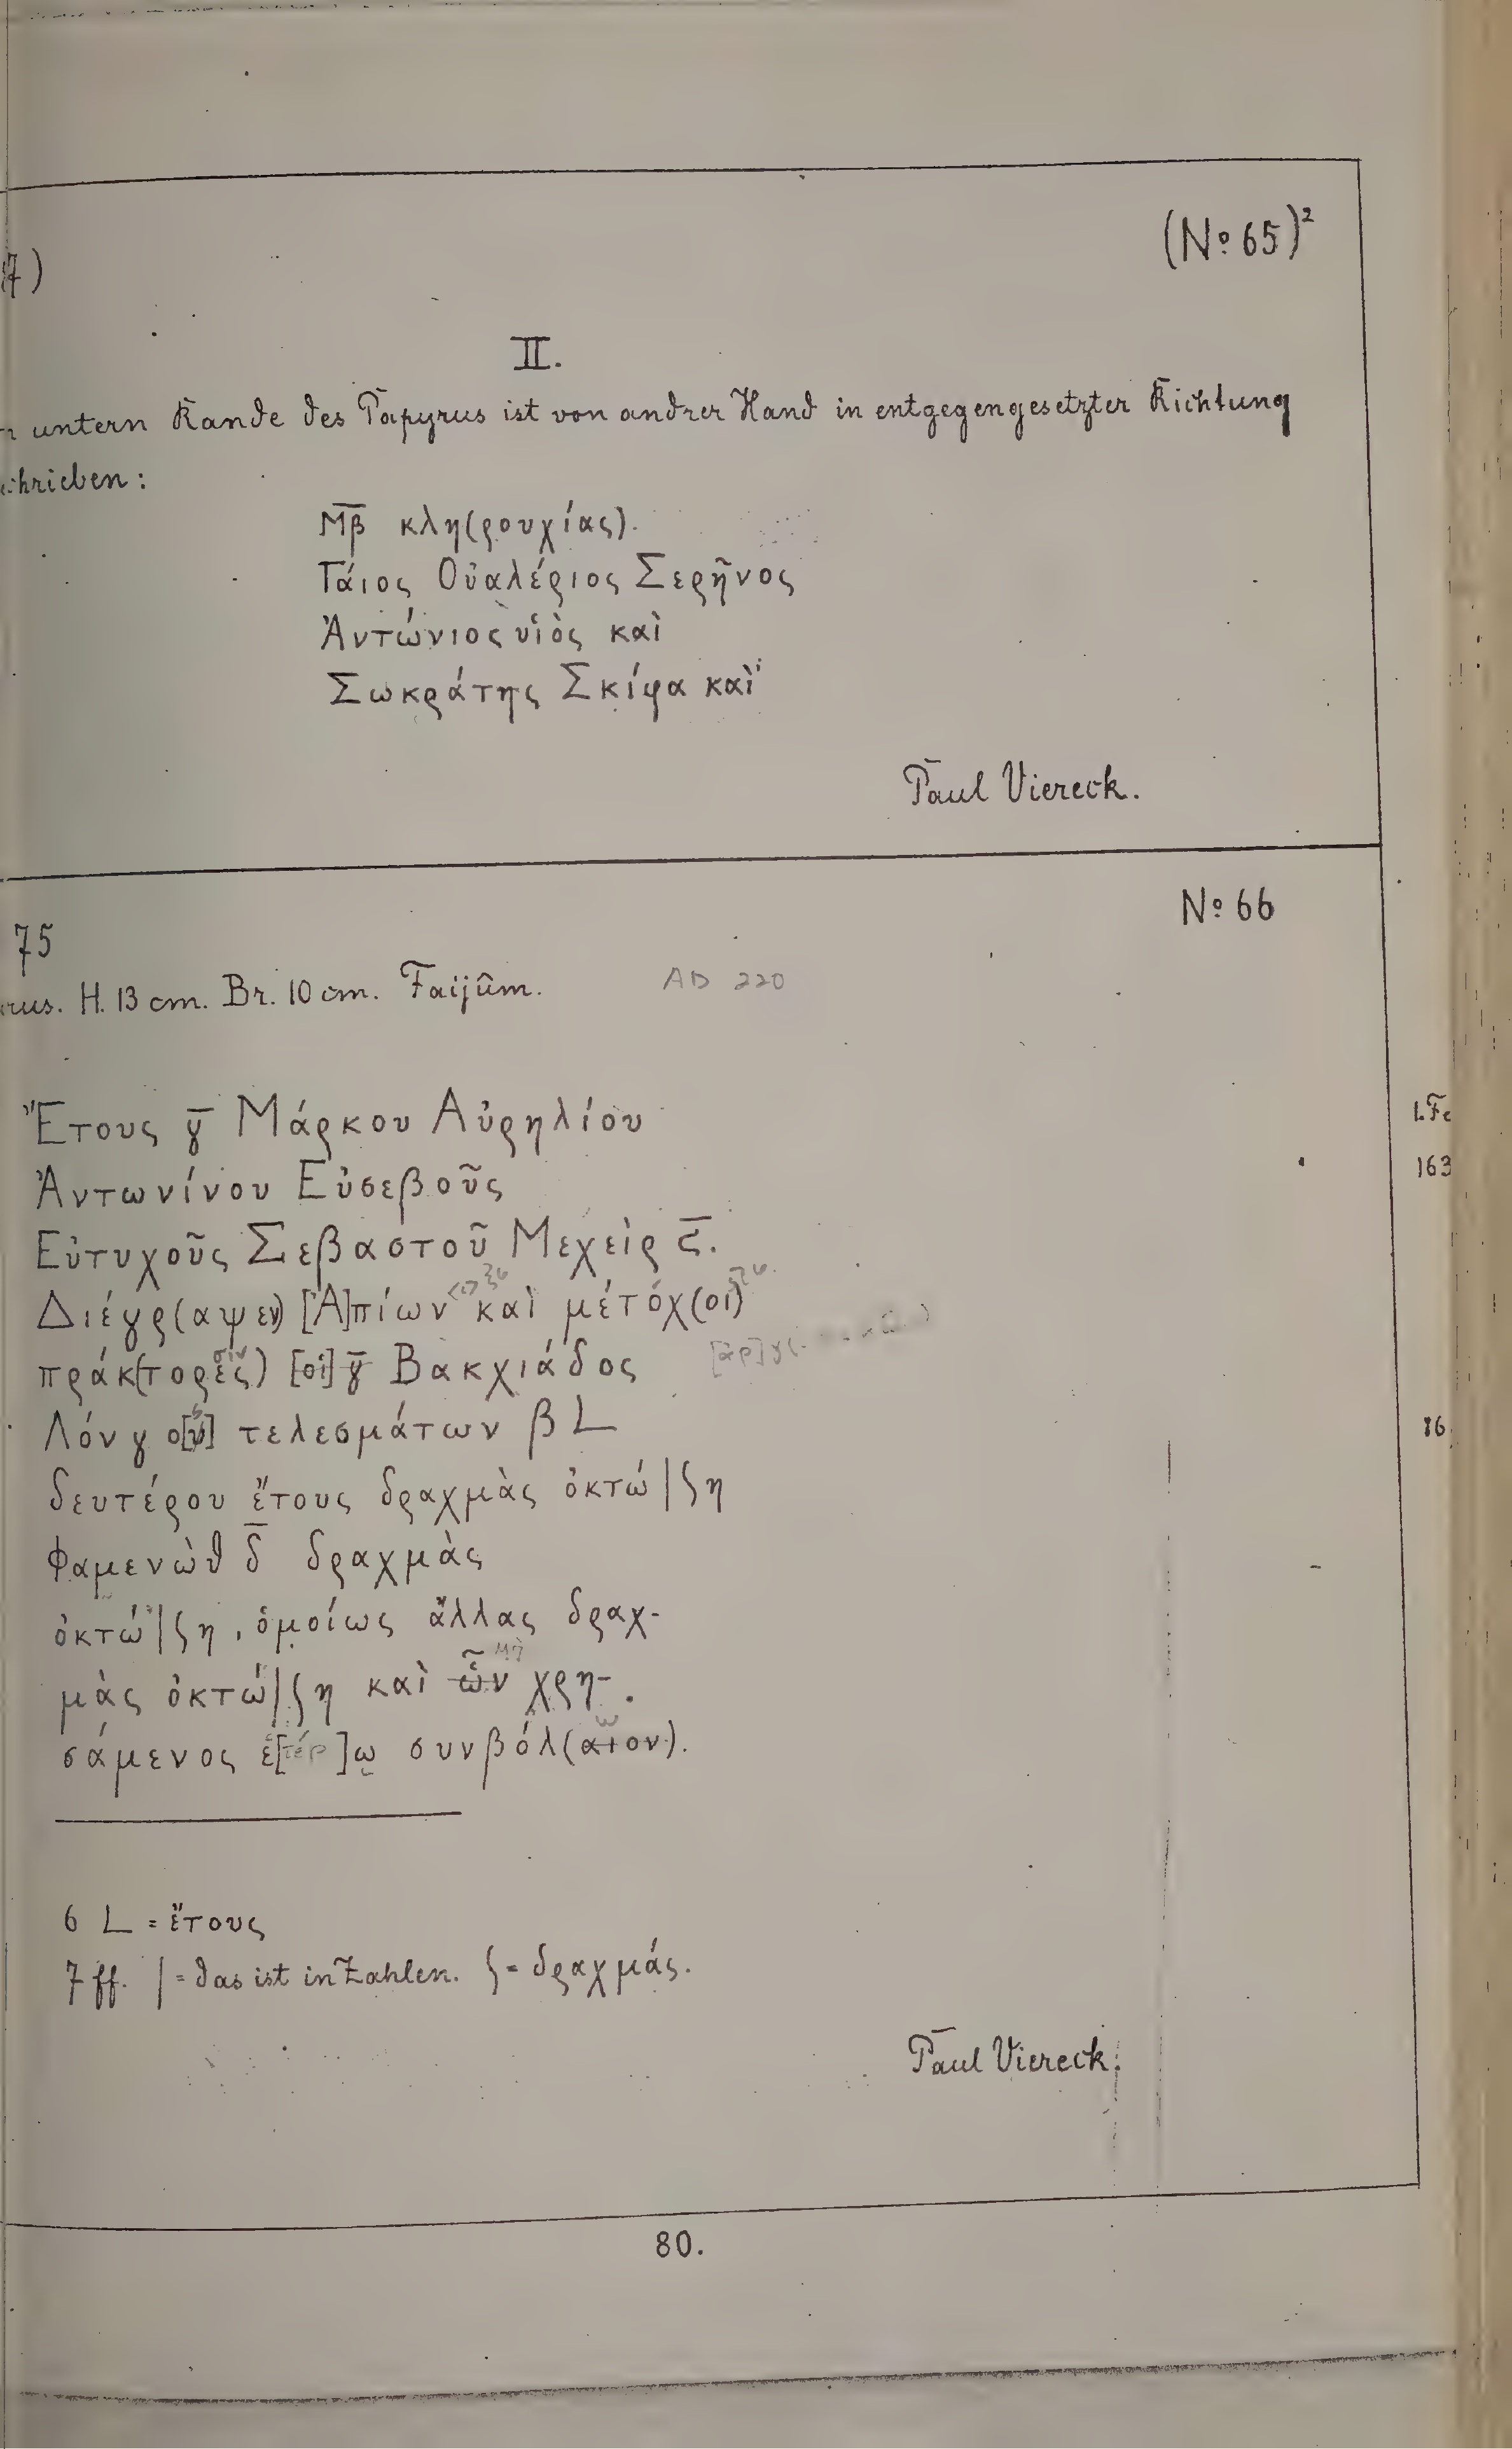 7)
(No 65)²
II.
untern Rande des Papyrus ist von andrer Hand in entgegengesetzter Richtung
chrieben:
Μβ̅ κλη(ρουχίας).
Γάιος Οὐαλέριος Σερῆνος
Ἀντώνιος υἱὸς καὶ
Σωκράτης Σκίφα καὶ
Paul Viereck.
75
No 66
rus. H. 13 cm. Br. 10 cm. Faijûm. AD 220
Ἔτους γ̅ Μάρκου Αὐρηλίου
Ἀντωνίνου Εὐσεβοῦς
Εὐτυχοῦς Σεβαστοῦ Μεχεὶρ ϛ̅.
Διέγρ(αψεν) [Ἀ]πίων καὶ μέτόχ(οι)
πράκ(τορες) [οἱ] γ̅ Βακχιάδος
Λόνγο[υ] τελεσμάτων β L
δευτέρου ἔτους δραχμὰς ὀκτώ |ʃ η
Φαμενὼθ δ̅ δραχμὰς
ὀκτώ |ʃ η, ὁμοίως ἄλλας δραχ-
μὰς ὀκτώ |ʃ η καὶ ὧν μὴ χρη-
σάμενος ἑ[τέρ]ῳ συνβόλ(αιον).
6 L = ἔτους
7 ff. | = das ist in Zahlen. ʃ = δραχμάς.
Paul Viereck.
80.
1. Fe
163